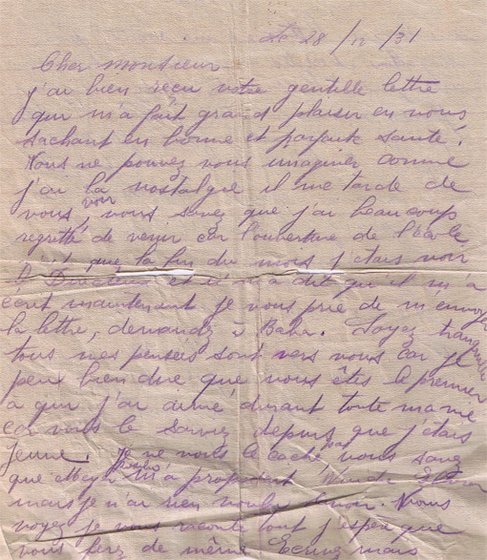 Le 28/12/31
Cher monsieur
j'ai bien reçu votre gentille lettre
qui m'a fait grand plaisir en vous
sachant en bonne et parfaite santé.
Vous ne pouvez vous imaginer comme
j'ai la nostalgie il me tarde de
vous voir, vous savez que j'ai beaucoup
regretté de venir car l'ouverture de l'école
que la fin du mois j'etais voir
le Directeur et il m'a dit qu'il m'a
écrit maintenant je vous prie de m'envoyer
la lettre, demandez à Soyez tranquille
tous mes pensées sont vers vous car je
peux bien dire que vous êtes le premier
à qui j'ai aimé durant toute ma vie
car vous le savez depuis que j'étais
jeune. je ne vous le cache pas vous savez
que m'a proposé
mais je n'ai rien voulu Vous
voyez je vous raconte tout j'espère que
vous ferez de même Ecrivez mais